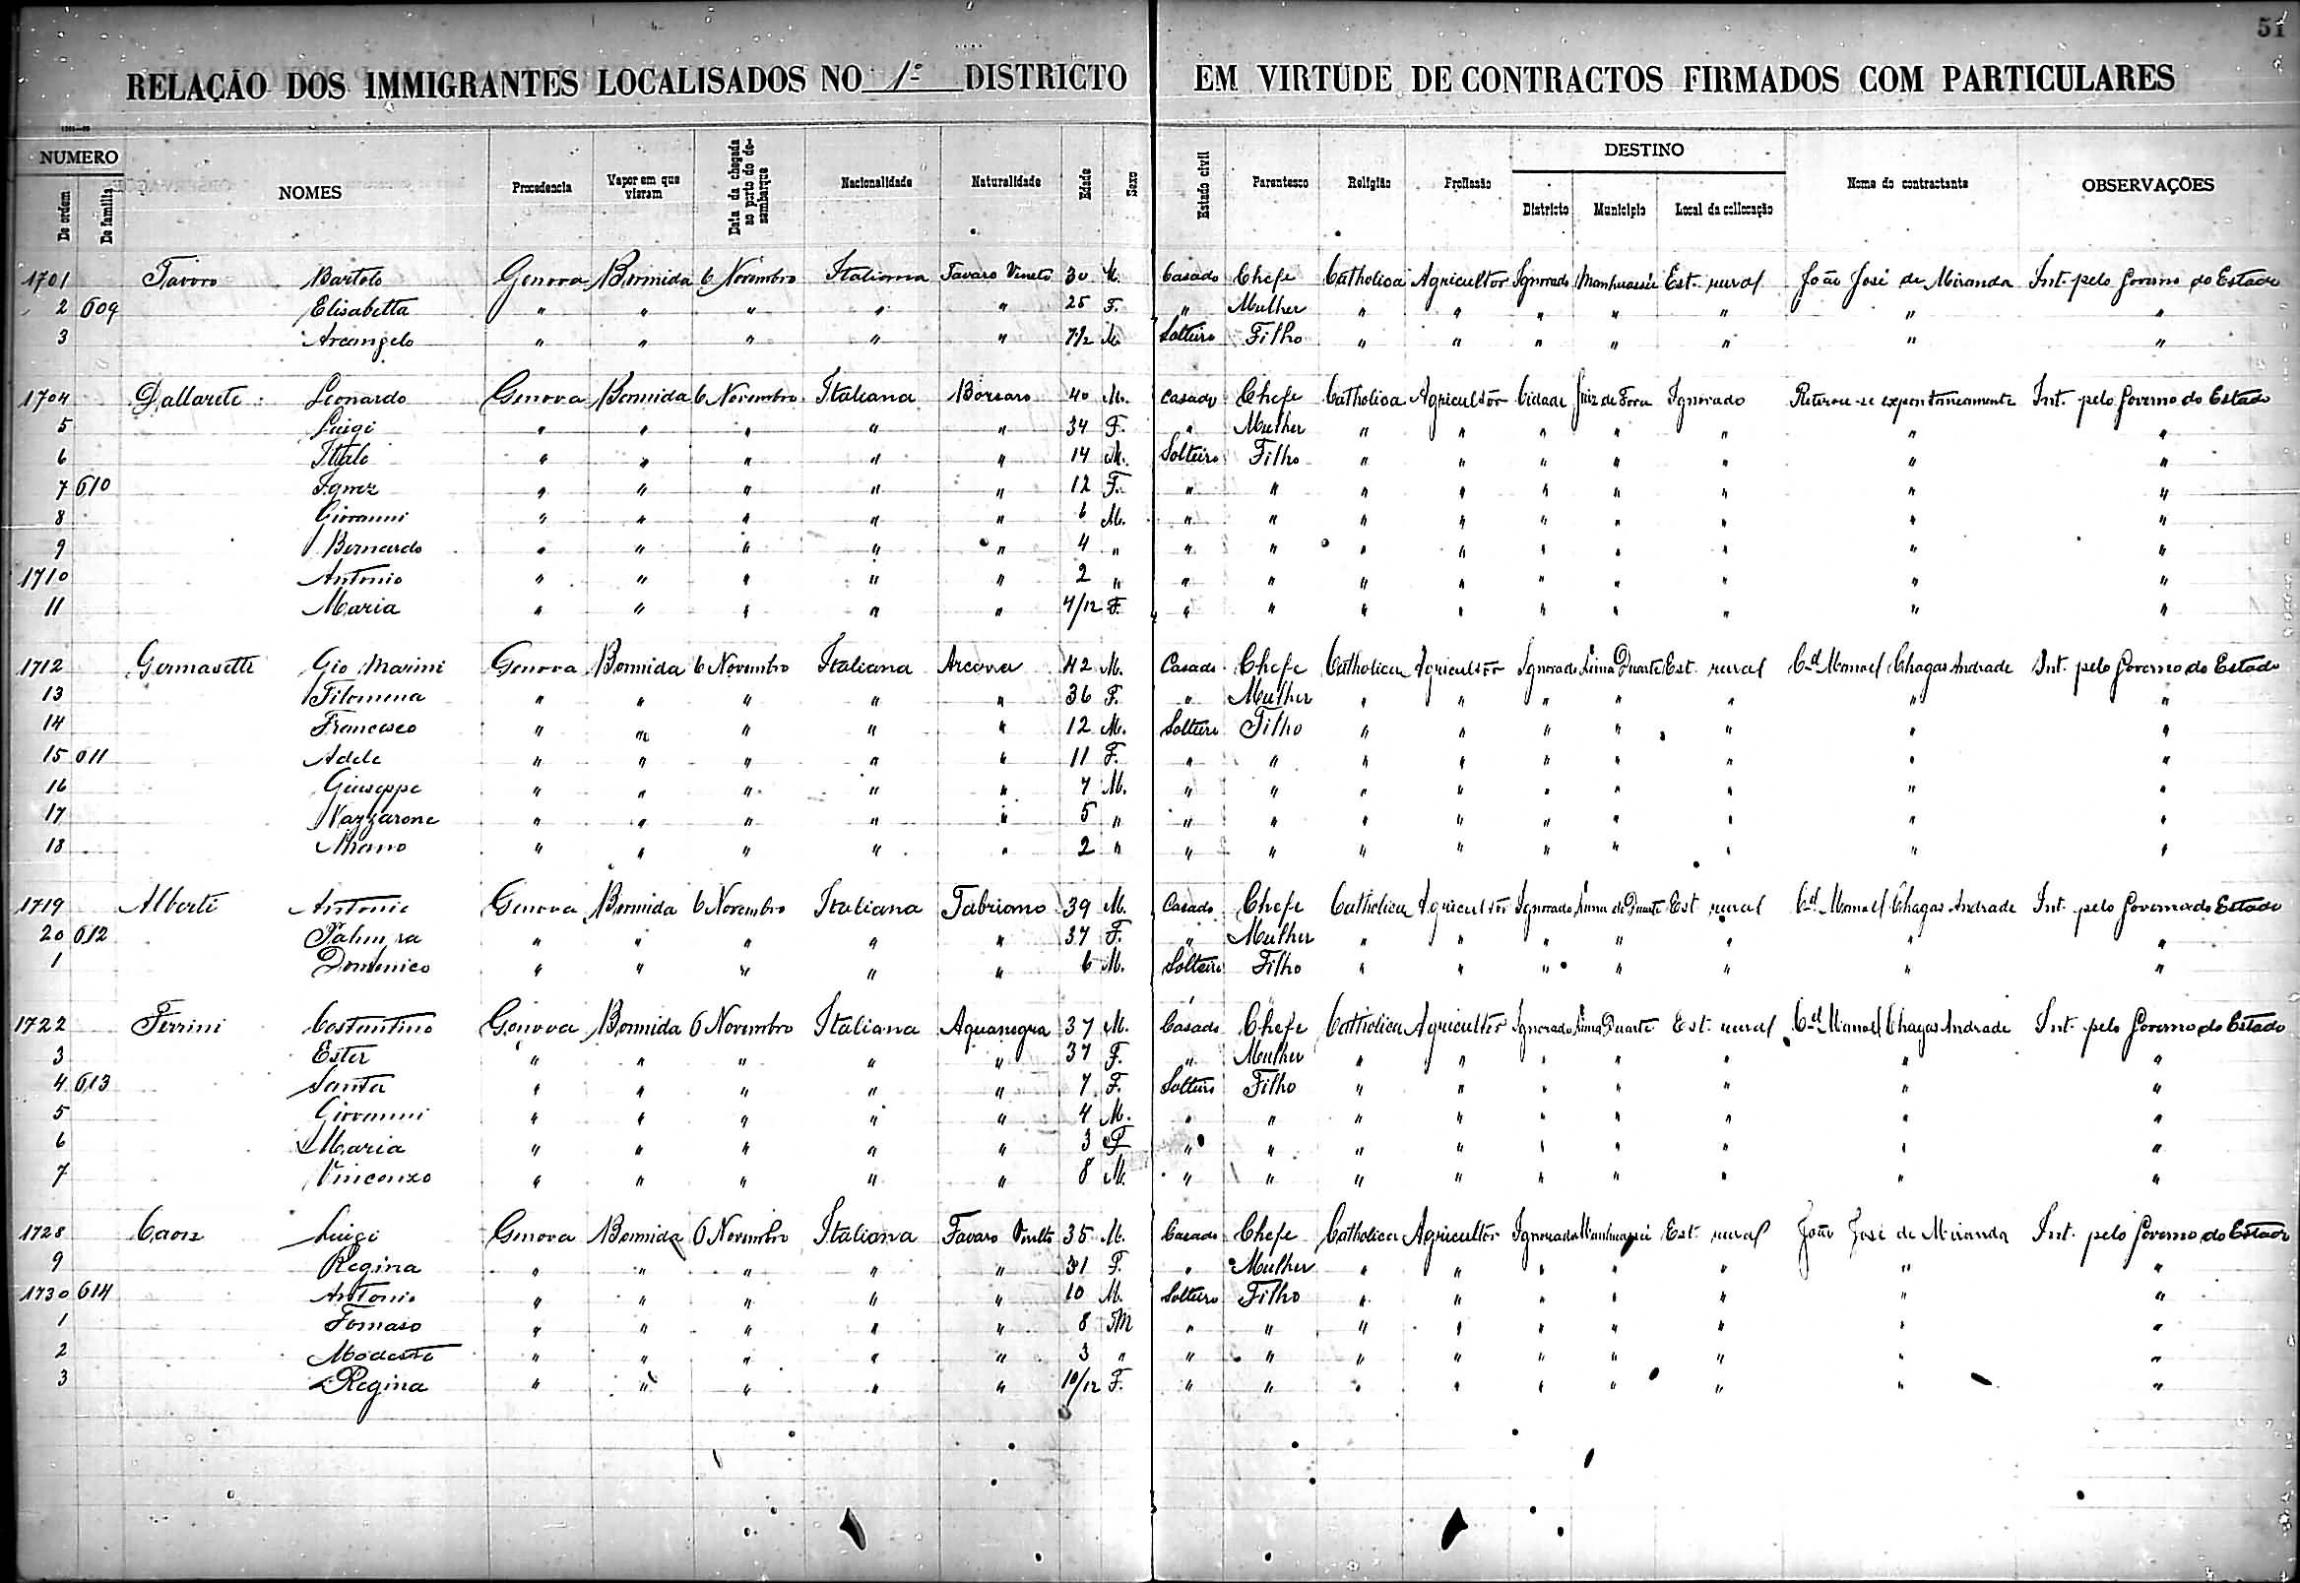 51
RELAÇÃO DOS IMMIGRANTES LOCALISADOS NO 1º DISTRICTO EM VIRTUDE DE CONTRACTOS FIRMADOS COM PARTICULARES
NUMERO De ordem De familia NOMES Procedencia Vapor em que vieram Data da chegada ao porto do desembarque Nacionalidade Naturalidade Edade Sexo Estado civil Parentesco Religião Profissão DESTINO Districto Municipio Local da collocação Nome do contractante OBSERVAÇÕES
1701 Favoro Bartolo Genova Bormida 6 Novembro Italiana Favaro Veneto 30 M. Casado Chefe Catholica Agricultor Ignorado Manhuassú Est. rural João José de Miranda Int. pelo Governo do Estado
2 609 Elisabetta " " " " " 25 F. " Mulher " " " " " " "
3 Arcangelo " " " " " 7½ M. Solteiro Filho " " " " " " "
1704 Dallarete Leonardo Genova Bormida 6 Novembro Italiana Borsaro 40 M. Casado Chefe Catholica Agricultor Cidade Juiz de Fora Ignorado Retirou-se expontaneamente Int. pelo Governo do Estado
5 Luigi " " " " " 34 F. " Mulher " " " " " " "
6 Italo " " " " " 14 M. Solteiro Filho " " " " " " "
7 610 Ignez " " " " " 12 F. " " " " " " " " "
8 Giovanni " " " " " 6 M. " " " " " " " " "
9 Bernardo " " " " " 4 " " " " " " " " " "
1710 Antonio " " " " " 2 " " " " " " " " " "
11 Maria " " " " " 4/12 F. " " " " " " " " "
1712 Germasetti Gio Marini Genova Bormida 6 Novembro Italiana Arcova 42 M. Casado Chefe Catholica Agricultor Ignorado Lima Duarte Est. rural Cel Manoel Chagas Andrade Int. pelo Governo do Estado
13 Filomena " " " " " 36 F. " Mulher " " " " " " "
14 Francesco " " " " " 12 M. Solteiro Filho " " " " " " "
15 611 Adele " " " " " 11 F. " " " " " " " " "
16 Giuseppe " " " " " 7 M. " " " " " " " " "
17 Nazzarone " " " " " 5 " " " " " " " " " "
18 " " " " " 2 " " " " " " " " " "
1719 Alberti Antonio Genova Bormida 6 Novembro Italiana Fabriano 39 M. Casado Chefe Catholica Agricultor Ignorado Lima Duarte Est. rural Cel Manoel Chagas Andrade Int. pelo Governo do Estado
20 612 Palmira " " " " " 37 F. " Mulher " " " " " " "
1 Domenico " " " " " 6 M. Solteiro Filho " " " " " " "
1722 Ferrini Costantino Genova Bormida 6 Novembro Italiana Aquanegra 37 M. Casado Chefe Catholica Agricultor Ignorado Lima Duarte Est. rural Cel Manoel Chagas Andrade Int. pelo Governo do Estado
3 Ester " " " " " 37 F. " Mulher " " " " " " "
4 613 Santa " " " " " 7 F. Solteiro Filho " " " " " " "
5 Giovanni " " " " " 4 M. " " " " " " " " "
6 Maria " " " " " 3 F " " " " " " " " "
7 Vincenzo " " " " " 8 M. " " " " " " " " "
1728 Caon Luigi Genova Bormida 6 Novembro Italiana Favaro Veneto 35 M. Casado Chefe Catholica Agricultor Ignorado Manhuassú Est. rural João José de Miranda Int. pelo Governo do Estado
9 Regina " " " " " 31 F. " Mulher " " " " " " "
1730 614 Antonio " " " " " 10 M. Solteiro Filho " " " " " " "
1 Tomaso " " " " " 8 M " " " " " " " " "
2 Modesto " " " " " 3 " " " " " " " " " "
3 Regina " " " " " 10/12 F. " " " " " " " " "